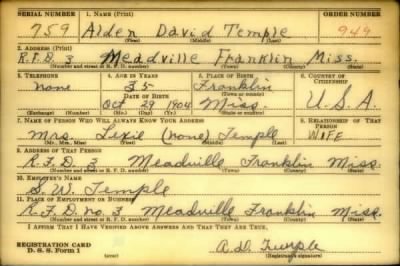 SERIAL NUMBER 1. NAME (Print) ORDER NUMBER
759 Alden David Temple 949
(First) (Middle) (Last)
2. ADDRESS (Print)
R.F.D. 3 Meadville Franklin Miss.
(Number and street or R. F. D. number) (Town) (County) (State)
3. TELEPHONE 4. AGE IN YEARS 5. PLACE OF BIRTH 6. COUNTRY OF CITIZENSHIP
none 35 Franklin
DATE OF BIRTH (Town or county)
Oct 29 1904 Miss. U.S.A.
(Mo.) (Day) (Yr.) (State or country)
7. NAME OF PERSON WHO WILL ALWAYS KNOW YOUR ADDRESS 8. RELATIONSHIP OF THAT PERSON
Mrs. Lexie (none) Temple WIFE
(Mr., Mrs., Miss) (First) (Middle) (Last)
9. ADDRESS OF THAT PERSON
R.F.D. 3 Meadville Franklin Miss.
(Number and street or R. F. D. number) (Town) (County) (State)
10. EMPLOYER'S NAME
S.W. Temple
11. PLACE OF EMPLOYMENT OR BUSINESS
R.F.D. no 3 Meadville Franklin Miss.
(Number and street or R. F. D. number) (Town) (County) (State)
I AFFIRM THAT I HAVE VERIFIED ABOVE ANSWERS AND THAT THEY ARE TRUE.
REGISTRATION CARD A.D. Temple
D. S. S. Form 1 (Registrant's signature)